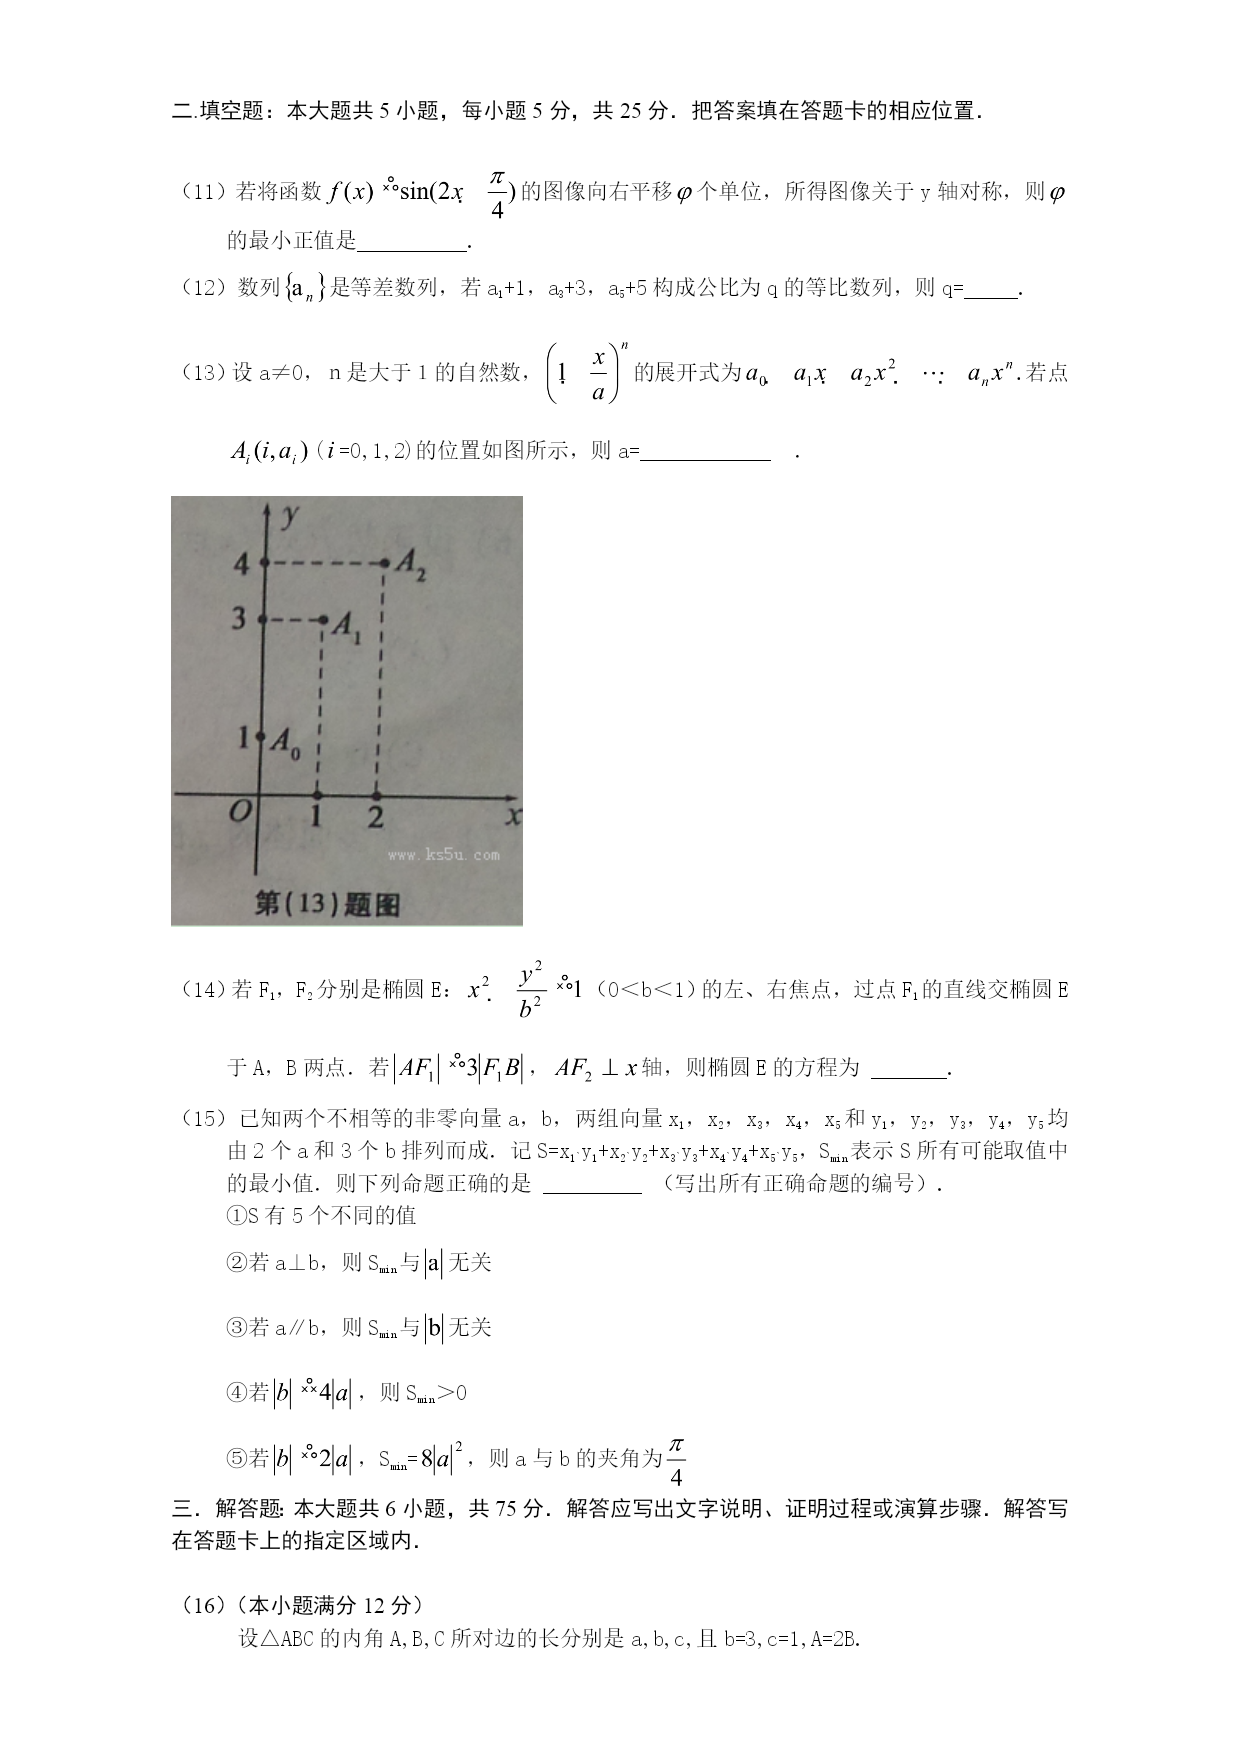 二.填空题：本大题共 5 小题，每小题 5 分，共 25 分．把答案填在答题卡的相应位置．
（11）若将函数 f(x) = sin(2x  π/4) 的图像向右平移φ个单位，所得图像关于 y 轴对称，则φ
的最小正值是__________．
（12）数列{aₙ}是等差数列，若 a₁+1，a₃+3，a₅+5 构成公比为 q 的等比数列，则 q=_____．
（13）设 a≠0，n 是大于 1 的自然数，(1  x/a)ⁿ 的展开式为 a₀  a₁x  a₂x²  ⋯  aₙxⁿ．若点
Aᵢ(i,aᵢ)(i=0,1,2)的位置如图所示，则 a=____________ ．
y
4 A₂
3 A₁
1 A₀
O 1 2 x
www.ks5u.com
第(13)题图
（14）若 F₁，F₂分别是椭圆 E：x²  y²/b² = 1（0＜b＜1）的左、右焦点，过点 F₁的直线交椭圆 E
于 A，B 两点．若|AF₁| = 3|F₁B|，AF₂ ⊥ x 轴，则椭圆 E 的方程为 _______．
（15）已知两个不相等的非零向量 a，b，两组向量 x₁，x₂，x₃，x₄，x₅和 y₁，y₂，y₃，y₄，y₅均
由 2 个 a 和 3 个 b 排列而成．记 S=x₁·y₁+x₂·y₂+x₃·y₃+x₄·y₄+x₅·y₅，Smin 表示 S 所有可能取值中
的最小值．则下列命题正确的是 _________ （写出所有正确命题的编号）．
①S 有 5 个不同的值
②若 a⊥b，则 Smin 与|a|无关
③若 a∥b，则 Smin 与|b|无关
④若|b|  4|a|，则 Smin＞0
⑤若|b|  2|a|，Smin=8|a|²，则 a 与 b 的夹角为π/4
三．解答题：本大题共 6 小题，共 75 分．解答应写出文字说明、证明过程或演算步骤．解答写
在答题卡上的指定区域内．
（16）（本小题满分 12 分）
设△ABC 的内角 A,B,C 所对边的长分别是 a,b,c,且 b=3,c=1,A=2B．